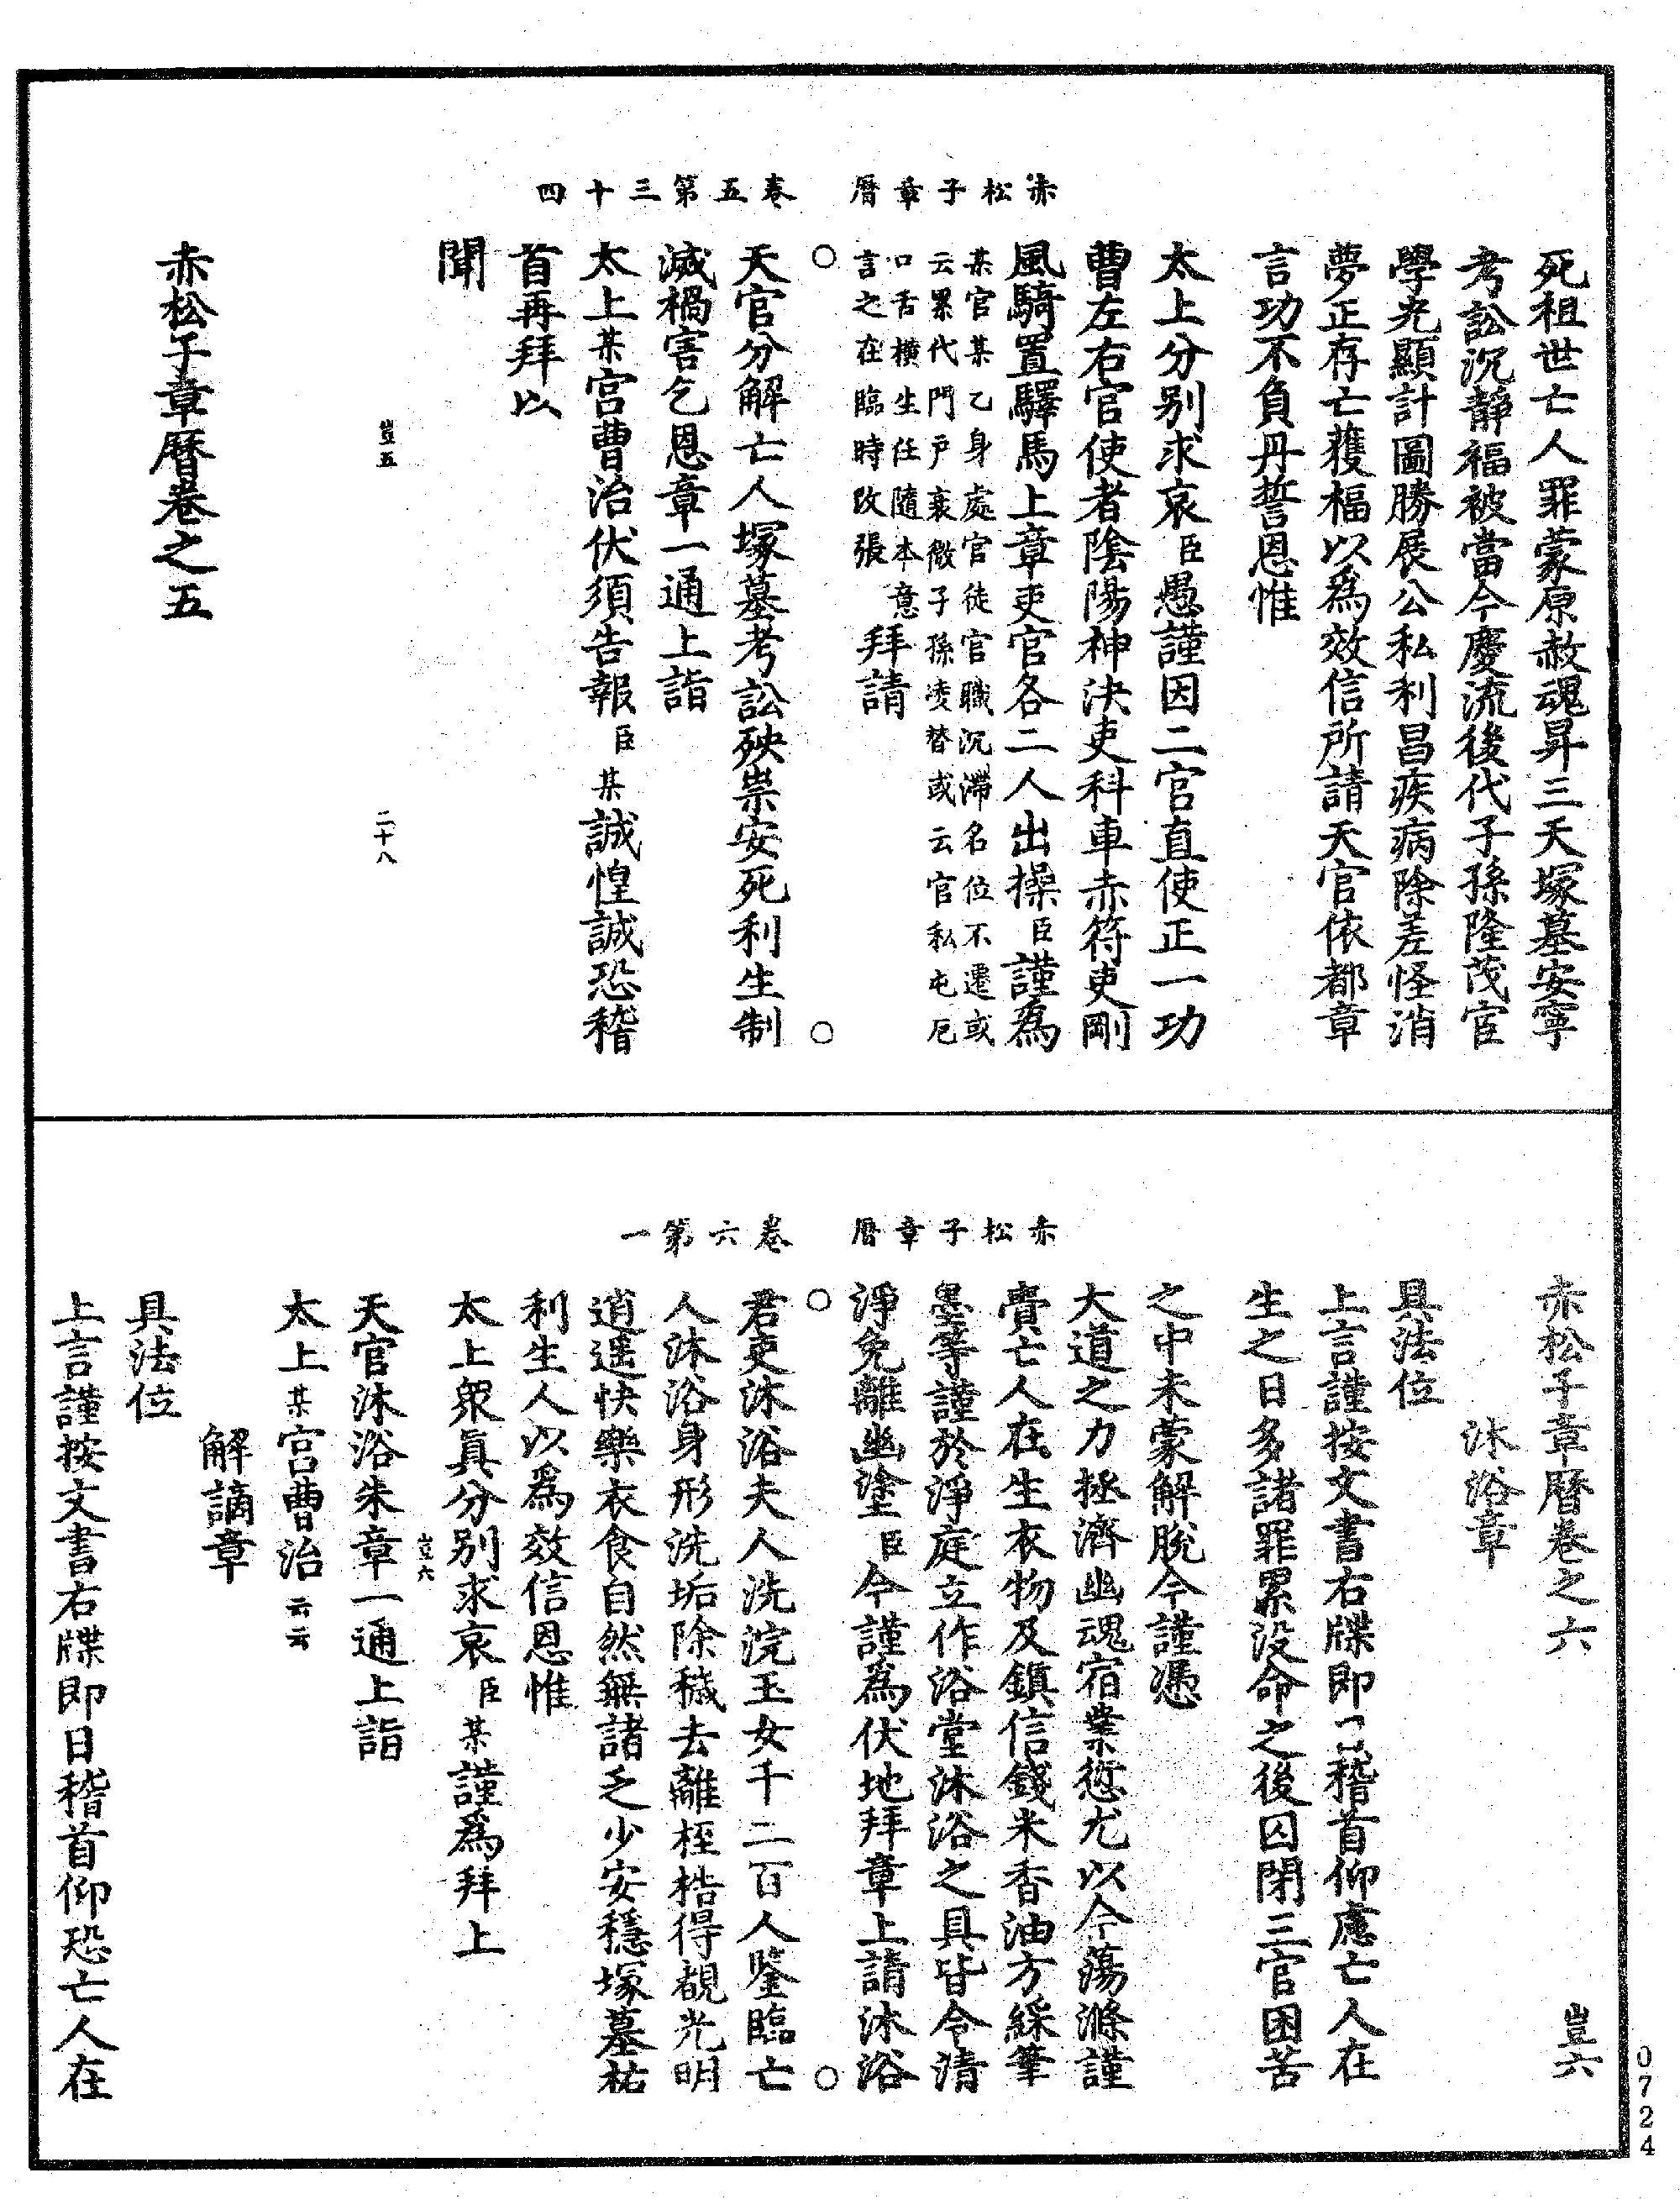 赤松子章曆　卷五第三十四
死祖世亡人罪蒙原赦魂昇三天塚墓安寧
考訟沉静福被當今慶流後代子孫隆茂宦
學光顯計圖勝展公私利昌疾病除差怪消
夢正存亡獲福以爲效信所請天官依都章
言功不負丹誓恩惟
太上分别求哀臣愚謹因二官直使正一功
曹左右官使者陰陽神決吏科車赤符吏剛
風騎置驛馬上章吏官各二人出操臣謹爲
某官某乙身處官徒官職沉滯名位不遷或
云累代門戶衰微子孫凌替或云官私屯厄
口舌橫生任隨本意
言之在臨時改張
拜請
天官分解亡人塚墓考訟殃祟安死利生制
滅禍害乞恩章一通上詣
太上某宫曹治伏須告報臣某誠惶誠恐稽
首再拜以
聞
豈五　二十八
赤松子章曆卷之五
赤松子章曆　卷六第一
赤松子章曆卷之六　豈六
沐浴章
具法位
上言謹按文書右牒即日稽首仰慮亡人在
生之日多諸罪累没命之後囚閉三官困苦
之中未蒙解脫今謹憑
大道之力拯濟幽魂宿業愆尤以今蕩滌謹
賷亡人在生衣物及鎮信錢米香油方綵筆
墨等謹於淨庭立作浴堂沐浴之具皆令清
淨免離幽塗臣今謹爲伏地拜章上請沐浴
君吏沐浴夫人洗浣玉女千二百人鉴臨亡
人沐浴身形洗垢除穢去離桎梏得覩光明
逍遥快樂衣食自然無諸乏少安穩塚墓祐
利生人以爲效信恩惟
太上衆眞分别求哀臣某謹爲拜上
豈六
天官沐浴朱章一通上詣
太上某宫曹治云云
解謫章
具法位
上言謹按文書右牒即日稽首仰恐亡人在
0724